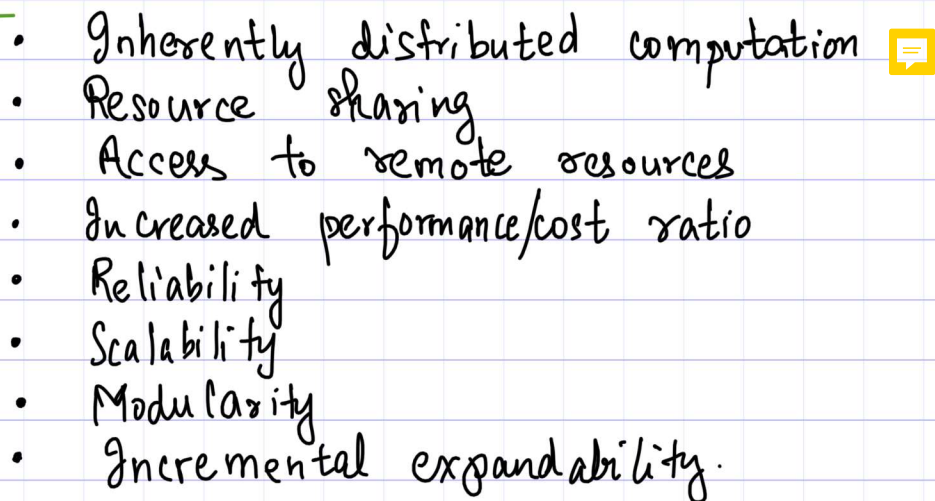 • Inherently distributed computation
• Resource sharing
• Access to remote resources
• Increased performance/cost ratio
• Reliability
• Scalability
• Modularity
• Incremental expandability.